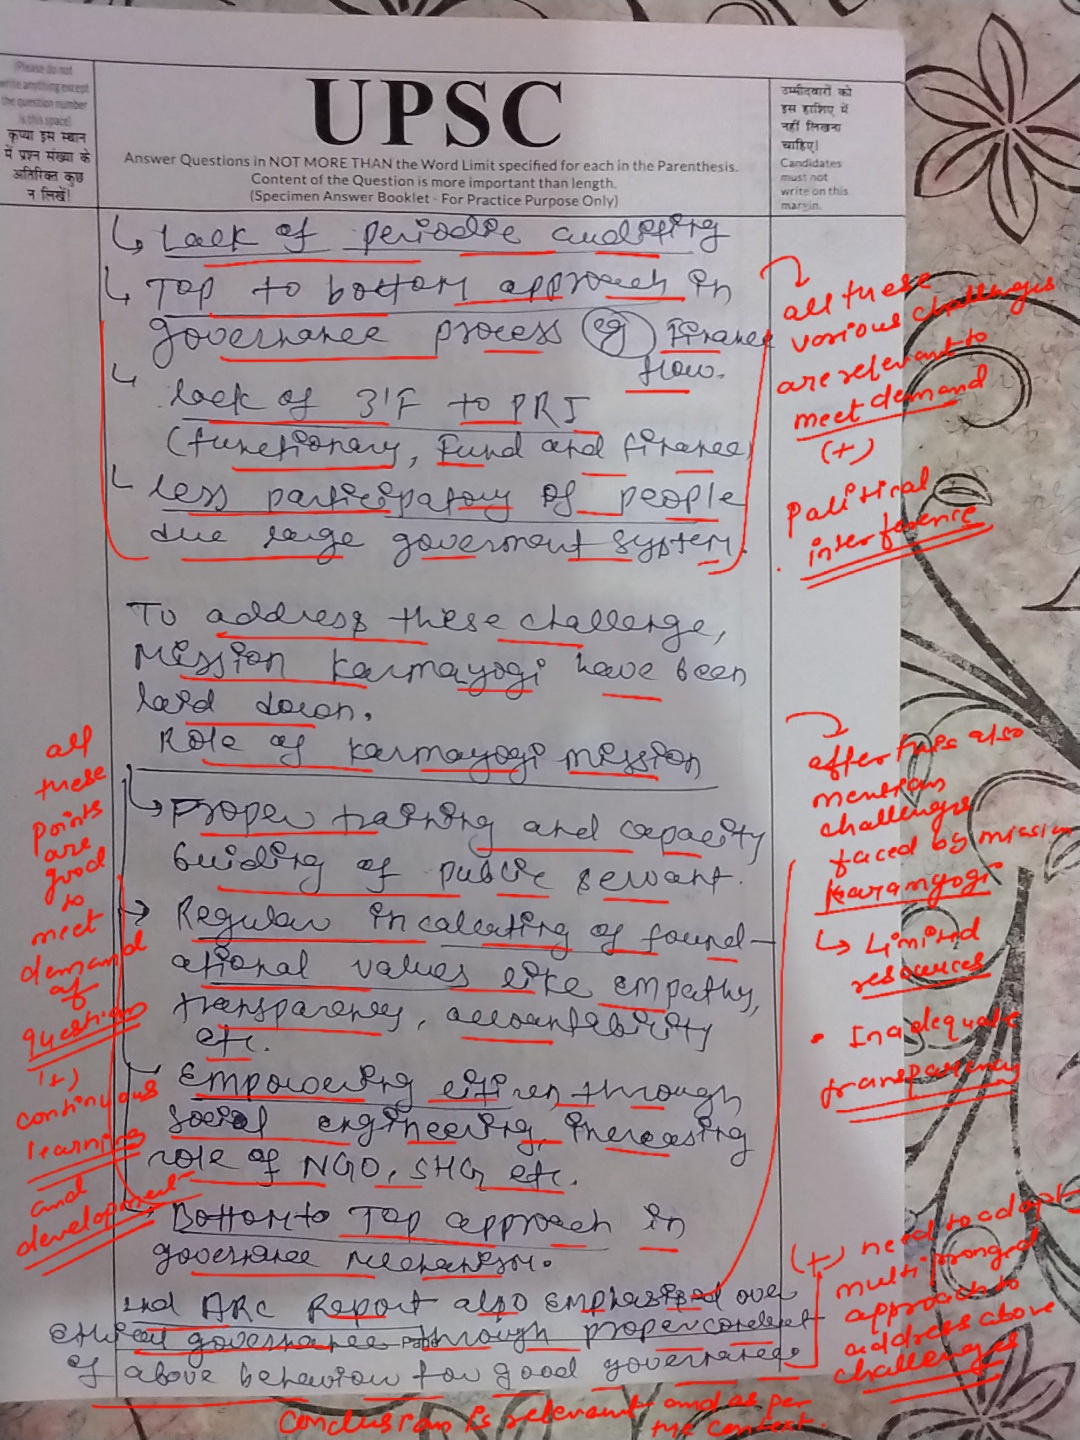 (Please do not
write anything except
the question number
is this space)
कृप्या इस स्थान
में प्रश्न संख्या के
अतिरिक्त कुछ
न लिखें।
UPSC
Answer Questions in NOT MORE THAN the Word Limit specified for each in the Parenthesis.
Content of the Question is more important than length.
(Specimen Answer Booklet - For Practice Purpose Only)
उम्मीदवारों को
इस हाशिए में
नहीं लिखना
चाहिए।
Candidates
must not
write on this
margin.
↳ Lack of periodic auditing
↳ Top to bottom approach in
governance process eg finance
flow.
↳ lack of 3'F to PRI
(functionary, Fund and finance)
↳ less participatory of people
due large goverment system.
all these
various challenges
are relevant to
meet demand
(+)
Political
interference
To address these challenge,
Mission Karmayogi have been
laid down.
Role of Karmayogi mission
↳ Proper training and capacity
buiding of public servant.
→ Regular incalcating of found-
ational values like empathy,
transparency, accountability
etc.
→ Empowering citizen through
social engineering, increasing
role of NGO, SHG etc.
→ Bottom to Top approach in
governance mechanism.
2nd ARC Report also emphasised over
ethical governance through proper conduct
of above behaviour for good governance.
all
these
points
are
good
to
meet
demand
of
question
(+)
continuous
learning
and
development
after this also
mention
challenges
faced by mission
Karamyogi
↳ Limited
resources
• Inadequate
transparency
(+) need to adopt
multi pronged
approach to
address above
challenges
Conclusion is relevant and as per
the context.